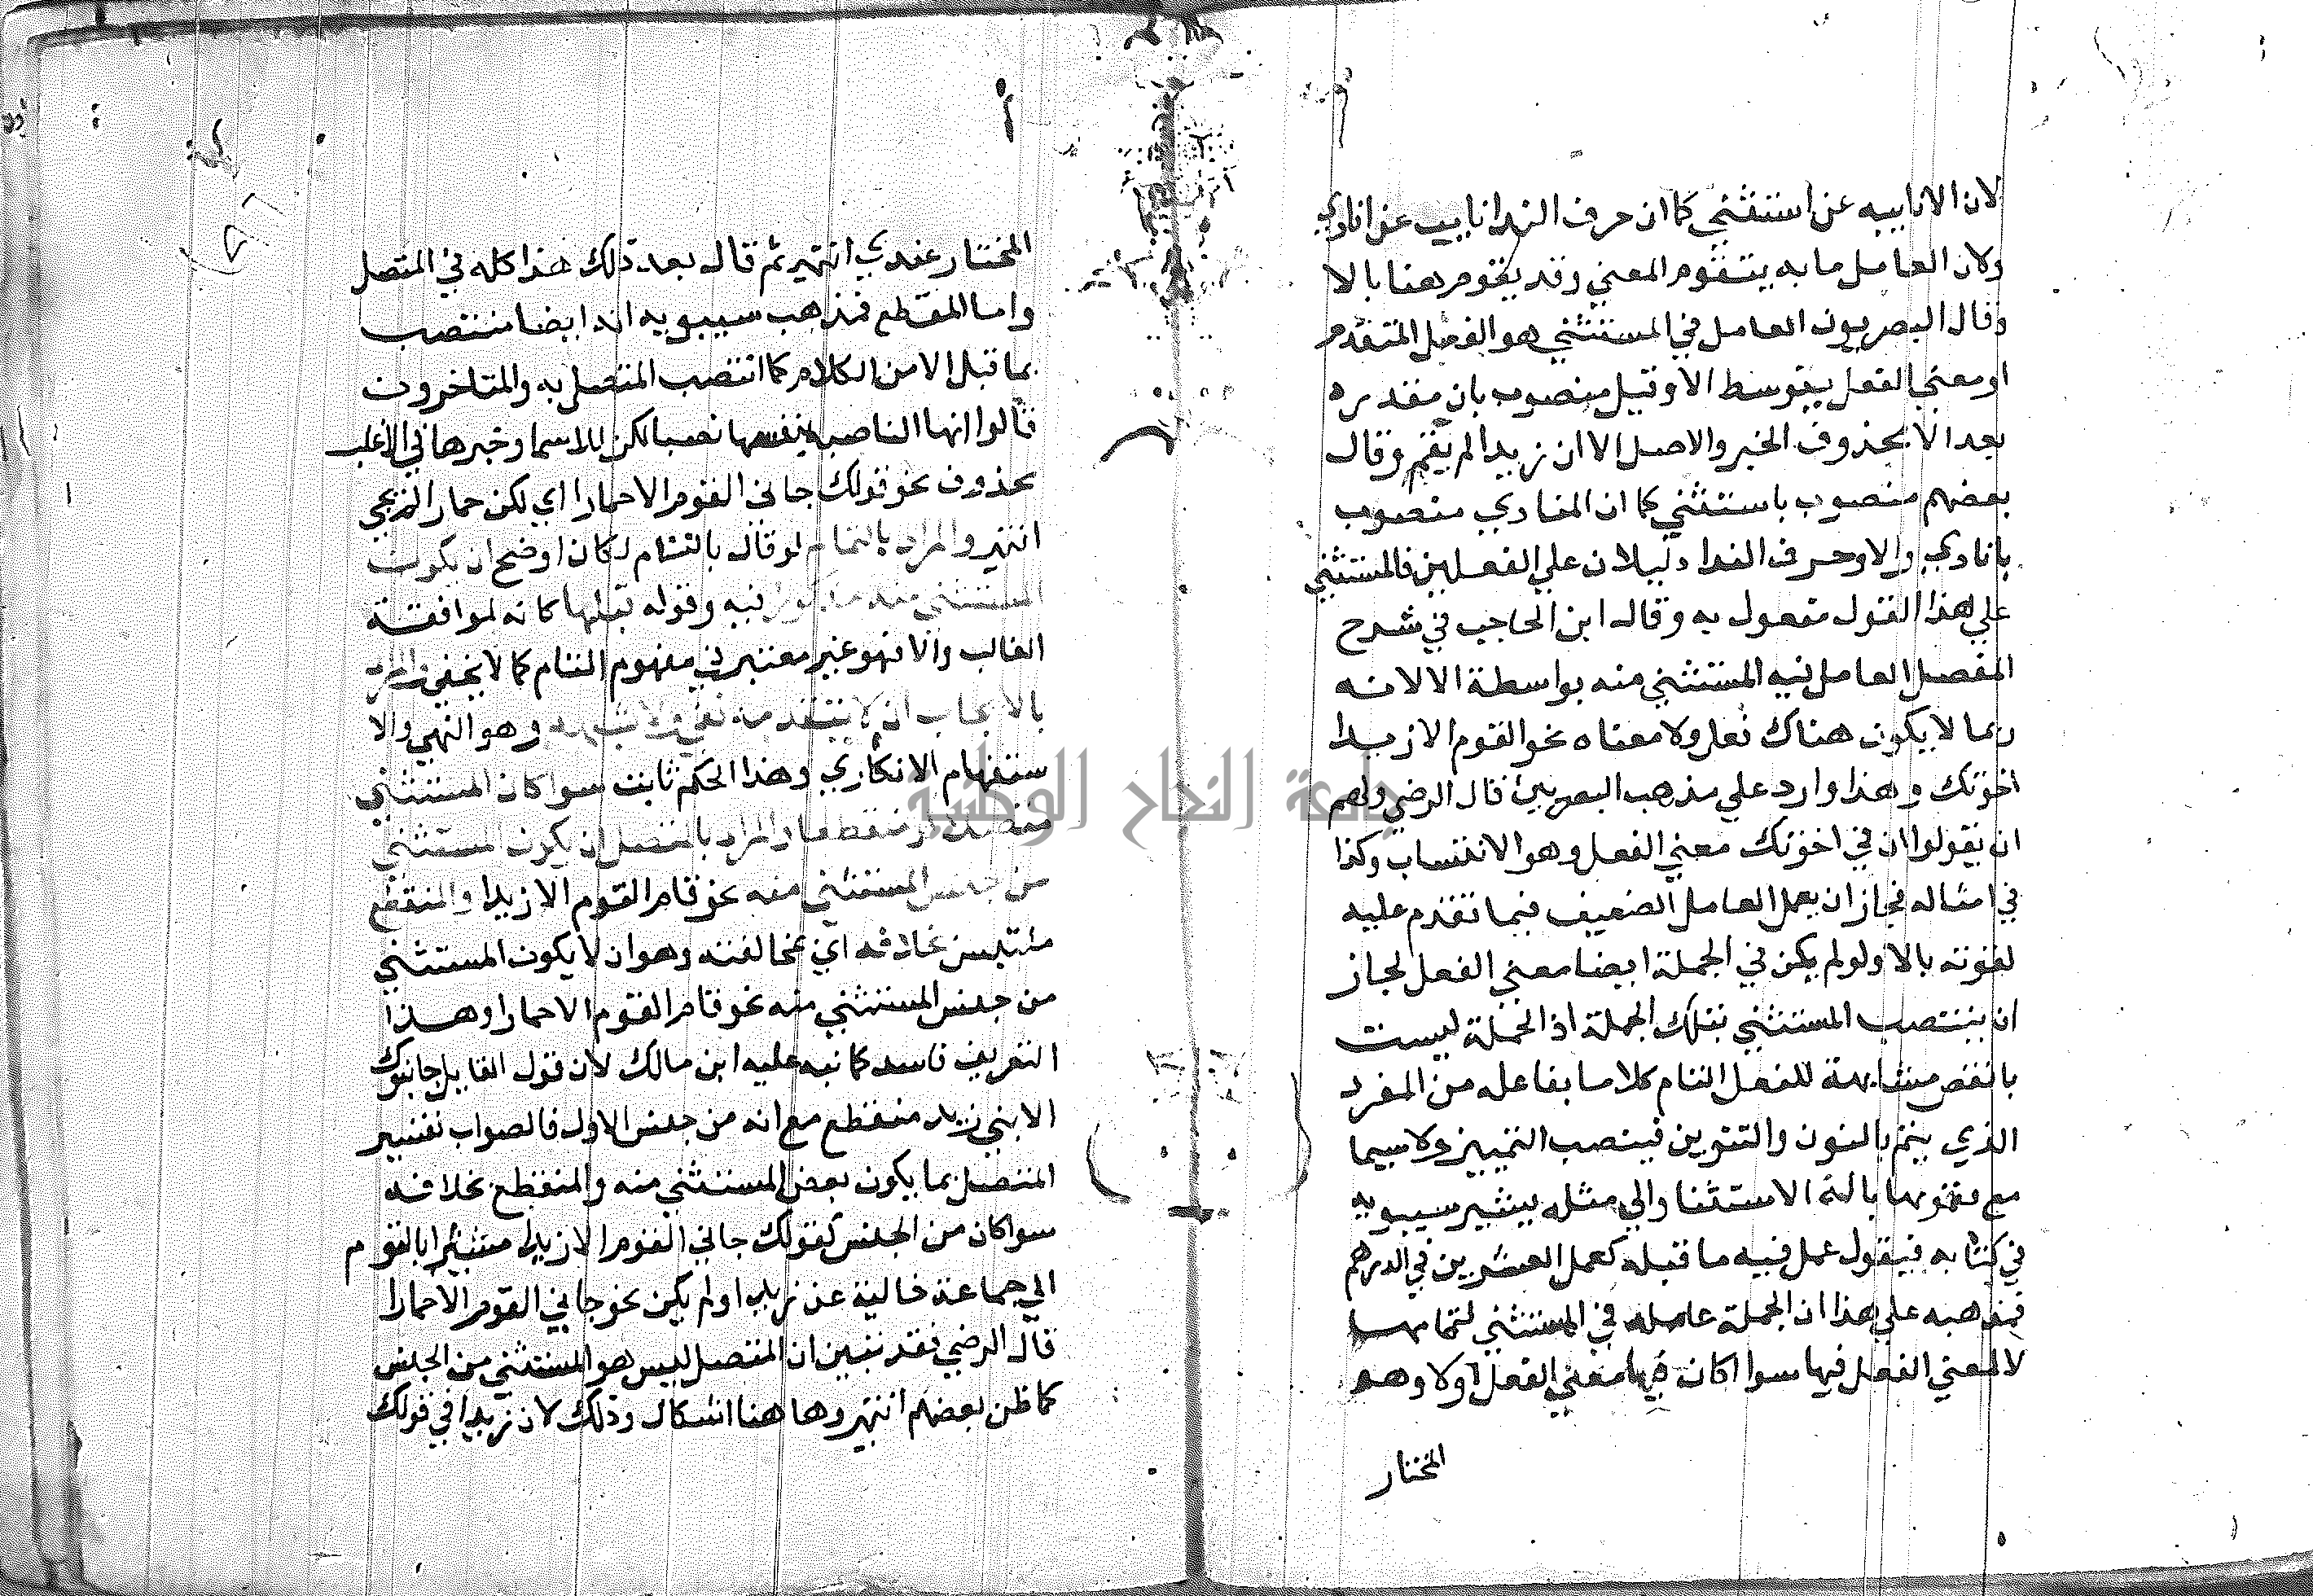 لان الا نايبه عن استثني كما ان حرف الندا نايب عن انادي
ولان العامل ما به يتقوم المعني وقد يقوم هنا بالا
وقال البصريون العامل في المستثني هو الفعل المتقدم
او معني الفعل بتوسط الا وقيل منصوب بان مقدره
بعد الا محذوف الخبر والاصل الا ان زيدا لم يقم وقال
بعضهم منصوب باستثني كما ان المنادي منصوب
بانادي والا وحرف الندا دليلان علي الفعلين فالمستثني
علي هذا القول مفعول به وقال ابن الحاجب في شرح
المفصل العامل فيه المستثني منه بواسطة الا لانه
ربما لا يكون هناك فعل ولا معناه نحو القوم الا زيدا
اخوتك وهذا وارد علي مذهب البصريين قال الرضي ولهم
ان يقولوا ان في اخوتك معني الفعل وهو الانتساب وكذا
في امثاله فجاز ان يعمل العامل الضعيف فيما تقدم عليه
لقوته بالا ولو لم يكن في الجملة ايضا معني الفعل لجاز
ان ينتصب المستثني بتلك الجملة اذ الجملة ليست
بانقص مشابهة للفعل التام كلاما بفاعله من المفرد
الذي يتم بالنون والتنوين فينصب التمييز ولا سيما
مع تقويها بالة الاستثنا والي مثله يشير سيبويه
في كتابه فيقول عمل فيه ما قبله كعمل العشرين في الدرهم
فمذهبه علي هذا ان الجملة عاملة في المستثني لتمامها
لا لمعني الفعل فيها سوا كان فيها معني الفعل اولا وهو
المختار
المختار عندي انتهي ثم قال بعد ذلك هذا كله في المتصل
واما المنقطع فمذهب سيبويه انه ايضا منتصب
بما قبل الا من الكلام كما انتصب المتصل به والمتاخرون
قالوا انها الناصبه بنفسها نصب لكن للاسما وخبرها في الاغلب
محذوف نحو قولك جاني القوم الا حمارا اي لكن حمارا لم يجي
انتهي والمراد بالتمام لو قال بالتام لكان اوضح ان يكون
المستثني منه مذكورا فيه وقوله قبلها كانه لموافقة
الغالب والا فهو غير معتبر في مفهوم التام كما لا يخفي والمراد
بالايجاب ان لا يتقدمه نفي ولا شبهه وهو النهي والا
ستفهام الانكاري وهذا الحكم ثابت سوا كان المستثني
متصلا او منقطعا والمراد بالمتصل ان يكون المستثني
من جنس المستثني منه نحو قام القوم الا زيدا والمنقطع
ملتبس بخلافه اي بمخالفته وهو ان لا يكون المستثني
من جنس المستثني منه نحو قام القوم الا حمارا وهذا
التعريف فاسد كما نبه عليه ابن مالك لان قول القايل جا بنوك
الا بني زيد منقطع مع انه من جنس الاول فالصواب تفسير
المتصل بما يكون بعض المستثني منه والمنقطع بخلافه
سوا كان من الجنس كقولك جاني القوم الا زيدا مشيرا بالقوم
الي جماعة خالية عن زيد او لم يكن نحو جاني القوم الا حمارا
قال الرضي فقد تبين ان المتصل ليس هو المستثني من الجنس
كما ظن بعضهم انتهي وها هنا اشكال وذلك لان زيدا في قولك
جامعة النجاح الوطنية